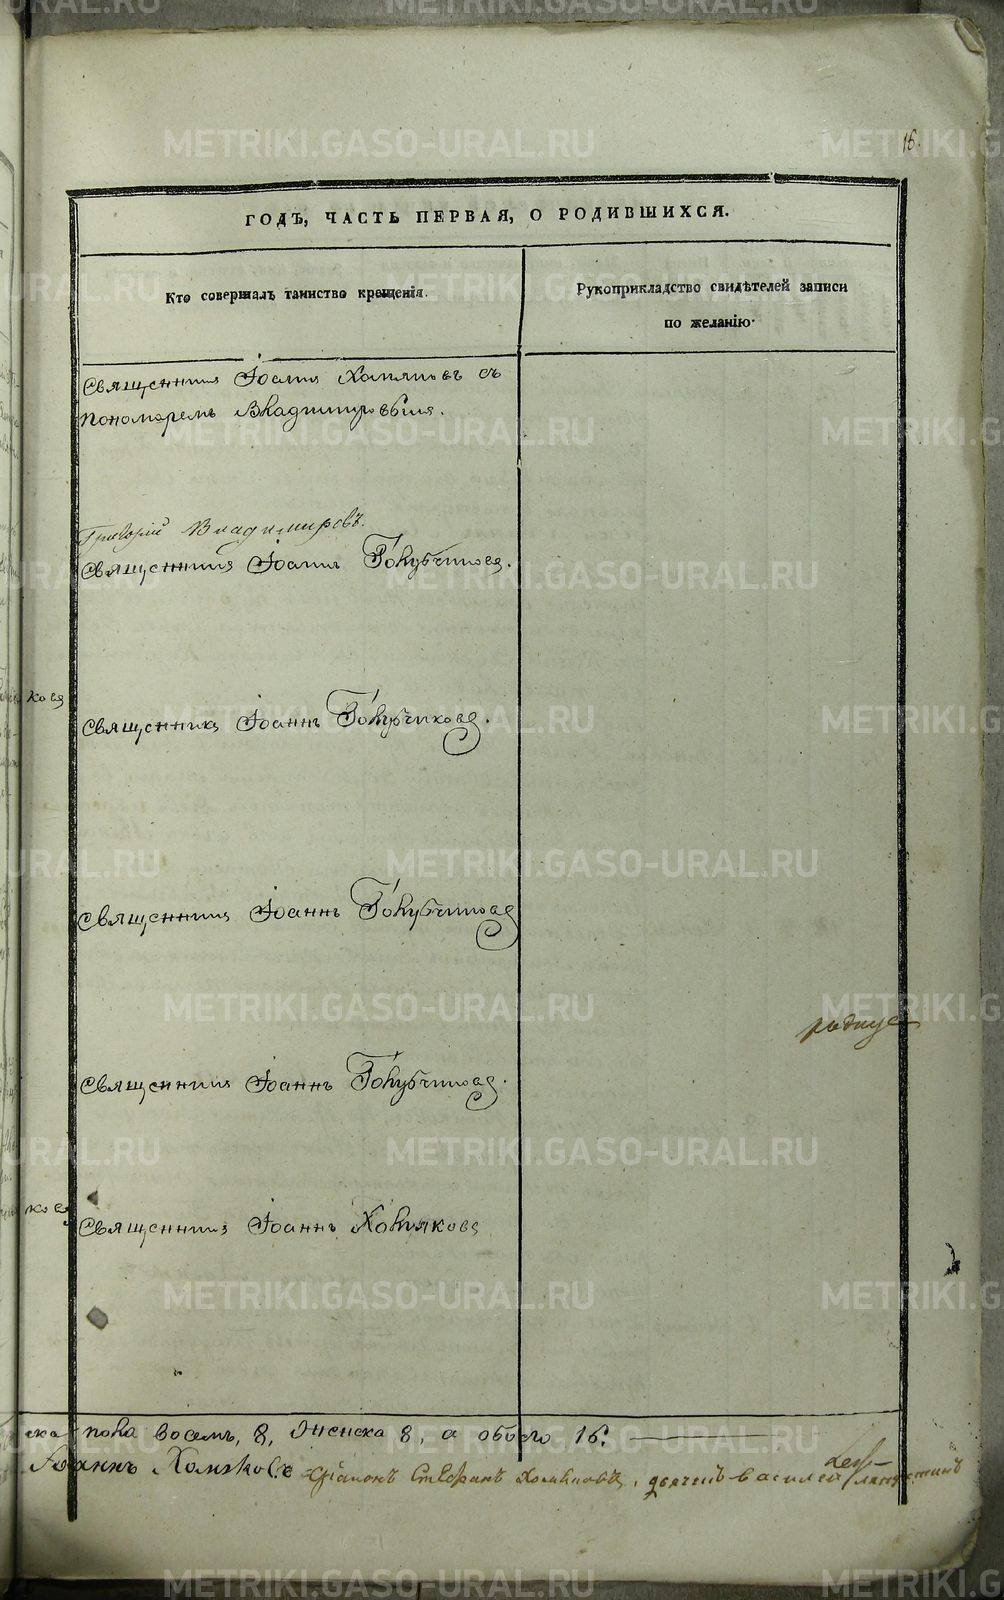 16.
ГОДЪ, ЧАСТЬ ПЕРВАЯ, О РОДИВШИХСЯ.
Кто совершалъ таинство крещенія.
Рукоприкладство свидѣтелей записи
по желанію.
Священникъ Іоаннъ Хомяковъ съ
пономаремъ Владимировымъ.
Григорій Владимировъ.
Священникъ Іоаннъ Голубчиковъ.
ковъ
Священникъ Іоаннъ Голубчиковъ.
Священникъ Іоаннъ Голубчиковъ
Священникъ Іоаннъ Голубчиковъ.
ковъ
Священникъ Іоаннъ Хомяковъ
ска пола восемь, 8, женска 8, а обоего 16.
Іоаннъ Хомяковъ Діаконъ Стефанъ Хомяковъ,
METRIKI.GASO-URAL.RU